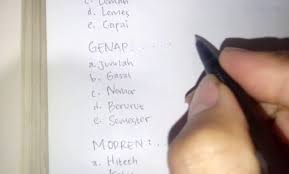 d. Lemies
e. Capai
GENAP.....
a. Jumlah
b. Gasal
c. Nomor
d. Berurut
e. Semester
MODREN:..
a. Hitech